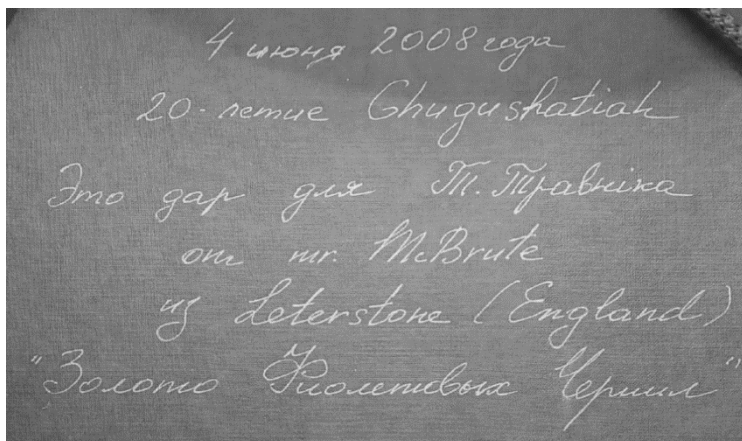 4 июня 2008 года
20-летие Chugushatiah
Это дар для Т. Травніка
от mr. McBrute
из Leterstone (England)
"Золото Фиолетовых Чернил"